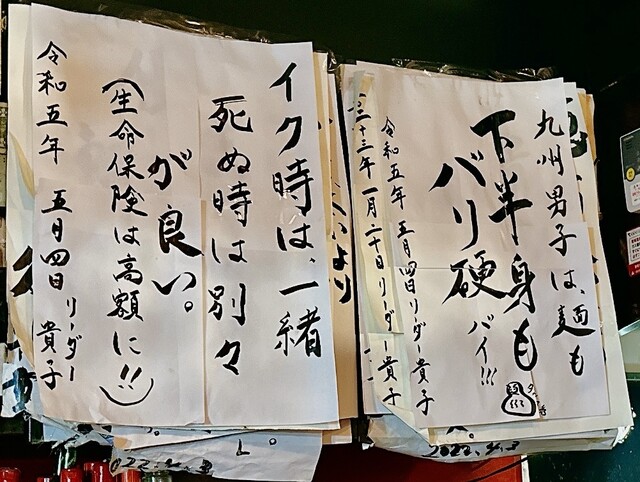 九州男子は、麺も
下半身も
バリ硬
バイ!!!
令和五年 五月四日リーダー貴子
三十三年一月二十日リーダー貴子
イク時は、一緒
死ぬ時は別々
が良い。
(生命保険は高額に!!)
令和五年 五月四日 リーダー貴子
2022.4.3